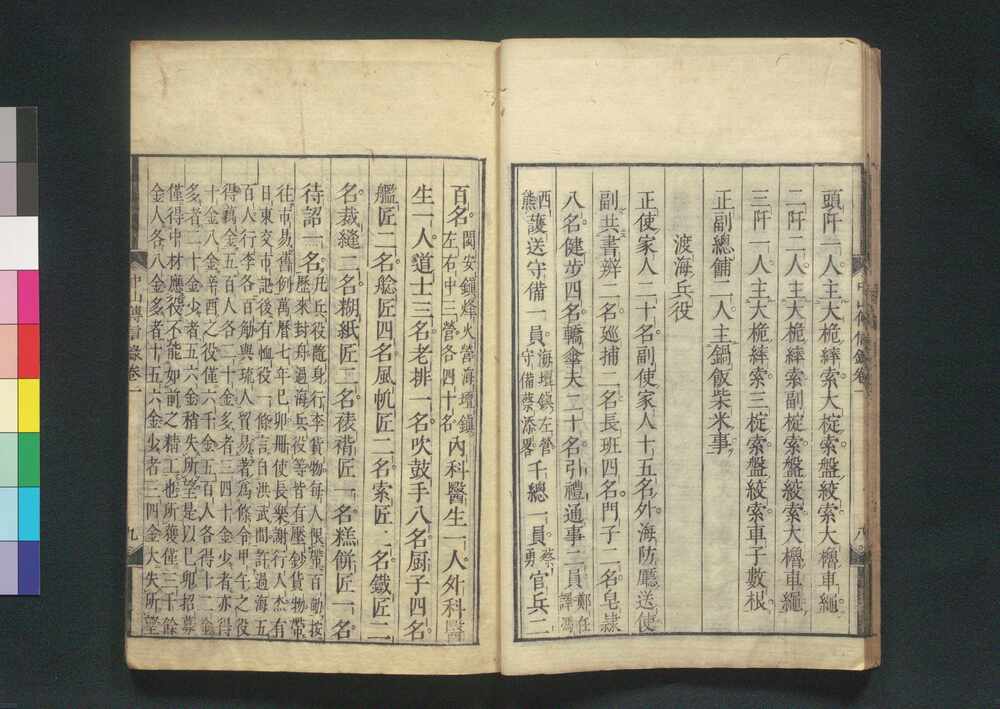 頭阡一人主大桅繂索大椗索盤絞索大櫓車繩
二阡二人主大桅繂索副椗索盤絞索大櫓車繩
三阡一人主大桅繂索三椗索盤絞索車子數根
正副總鋪二人主鍋飯柴米事
渡海兵役
正使家人二十名副使家人十五名外海防廳送使
副共書辦二名廵捕二名長班四名門子二名皂隸
八名健步四名轎傘夫二十名引禮通事二員鄭任譯馮
西熊護送守備一員海壇鎮左營守備蔡添畧千總一員蔡勇官兵二
中山傳信錄卷一
八
百名閩安鎮烽火營海壇鎮左右中三營各四十名內科醫生一人外科醫
生一人道士三名老排一名吹鼓手八名厨子四名
艦匠二名艌匠四名風帆匠二名索匠一名鐵匠二
名裁縫二名糊紙匠二名裱褙匠一名糕餅匠一名
待詔一名凡兵役隨身行李貨物每人限帶百觔按
歷來封舟過海兵役等皆有壓鈔貨物帶
往市易舊例萬曆七年己卯冊使長樂謝行人杰有
日東交市記後有恤役一條言自洪武間許過海五
百人行李各百觔與琉人貿易著為條令甲午之役
得萬金五百人各二十金多者三四十金少者亦得
十金八金辛酉之役僅六千金五百人各得十二金
多者二十金少者五六金稍失所望是以己卯招募
僅得中材應役不能如前之精工也所獲僅三千餘
金人各八金多者十五六金少者三四金大失所望
中山傳信錄卷一
九